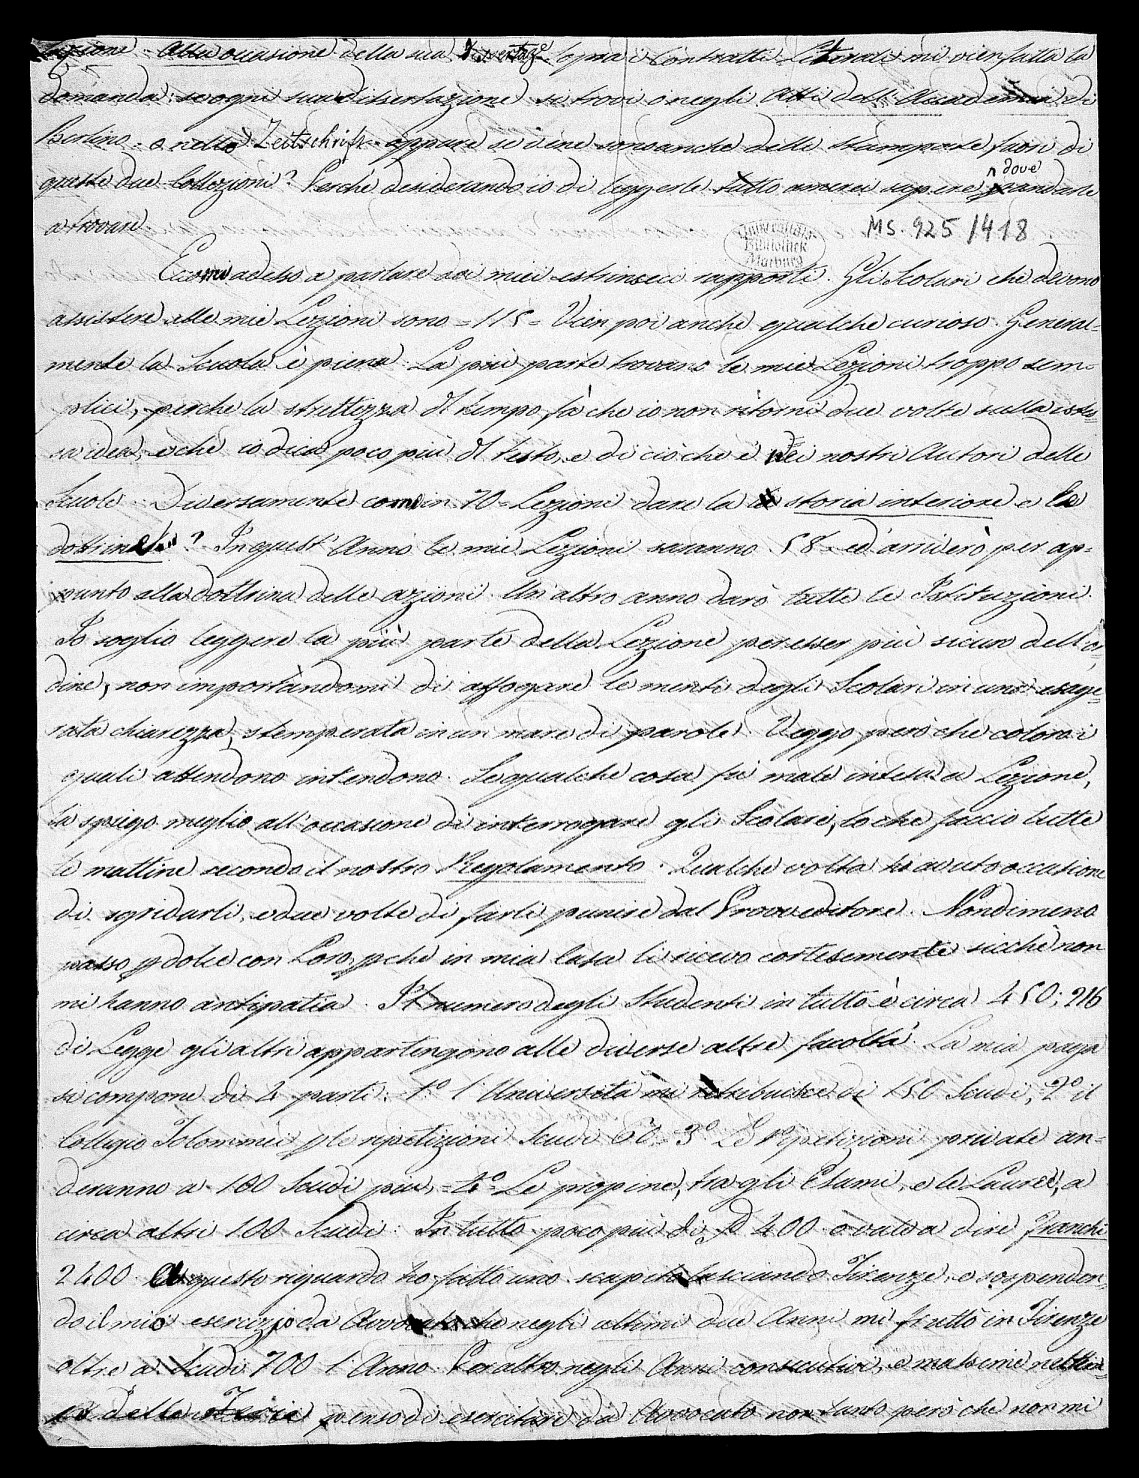 lazione. Alla occasione della sua Dissertaz.e sopra i Contratti Literali mi vien fatta la
domanda: se ogni sua dissertazione si trovi o negli Atti dell' Accademia di
Berlino, o nella Zeitschrift oppure se ve ne sono anche delle stampate fuori di
queste due Collezioni? Perché desiderando io di leggerle tutto amerei sapere dove andarle
a trovare.
MS. 925/418
Universitäts-
Bibliothek
Marburg
Eccomi adesso a parlare dei miei estrinseci rapporti. Gli Scolari che devono
assistere alle mie Lezioni sono = 115 = Vien poi anche qualche curioso. General=
mente la Scuola è piena. La più parte trovano le mie Lezioni troppo sem=
plici, perche la strettezza del tempo fà che io non ritorni due volte sulla istes=
sa idea, e che io dica poco più del testo, e di ciò che è nei nostri Autori delle
Scuole. Diversamente come in 70 = Lezioni dare la storia interiore e la
dottrina? In quest' Anno le mie Lezioni saranno 58 = ed arriverò per ap=
punto alla dottrina delle azioni. Un altro anno darò tutte le Istituzioni.
Io soglio leggere la più parte della Lezione per esser più sicuro dell' or=
dine, non importandomi di affogare le menti degli Scolari in una esage=
rata chiarezza, stemperata in un mare di parole. Veggo però che coloro i
quali attendono intendono. Se qualche cosa fù male intesa a Lezione,
la spiego meglio all' occasione di interrogare gli Scolari, lo che faccio tutte
le mattine secondo il nostro Regolamento. Qualche volta ho avuto occasione
di sgridarli, e due volte di farli punire dal Provveditore. Nondimeno
passo p dolce con Loro, pche in mia Casa li ricevo cortesemente sicchè non
mi hanno antipatia. Il numero degli Studenti in tutto è circa 450; 216
di Legge gli altri appartengono alle diverse altre facoltà. La mia paga
si compone di 4 parti. 1.o L' Università mi retribuisce di 150 Scudi, 2.o il
Collegio Tolommei p le ripetizioni Scudi 60. 3.o Le Ripetizioni private an=
deranno a 100 Scudi più, = 4.o Le propine, tra gli Esami, e le Lauree, a
circa altri 100 Scudi. In tutto poco più di 400 o valsa dire Franchi
2400. A questo riguardo ho fatto uno scapito lasciando Firenze, e sospenden=
do il mio esercizio da Avvocato che negli ultimi due Anni mi fruttò in Firenze
oltre a Scudi 700 l' Anno. Per altro negli Anni consecutivi, e massime
delle Ferie penso di esercitare da Avvocato non tanto però che non mi